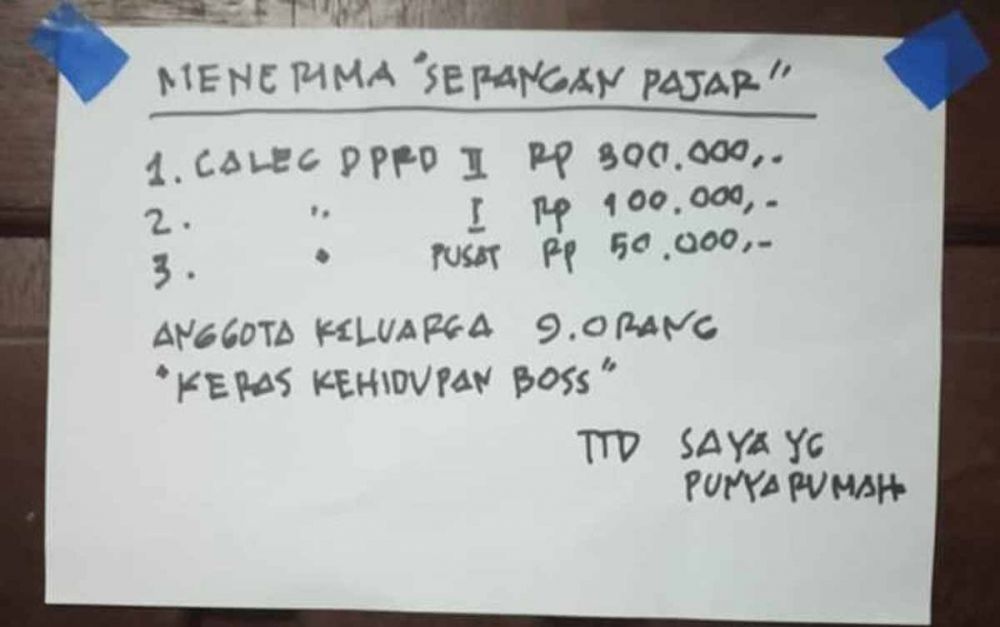 MENERIMA "SERANGAN PAJAR"
1. CALEG DPRD II RP 300.000,-
2. " I RP 100.000,-
3. " PUSAT RP 50.000,-
ANGGOTA KELUARGA 9.ORANG
"KERAS KEHIDUPAN BOSS"
TTD SAYA YG
PUNYA RUMAH